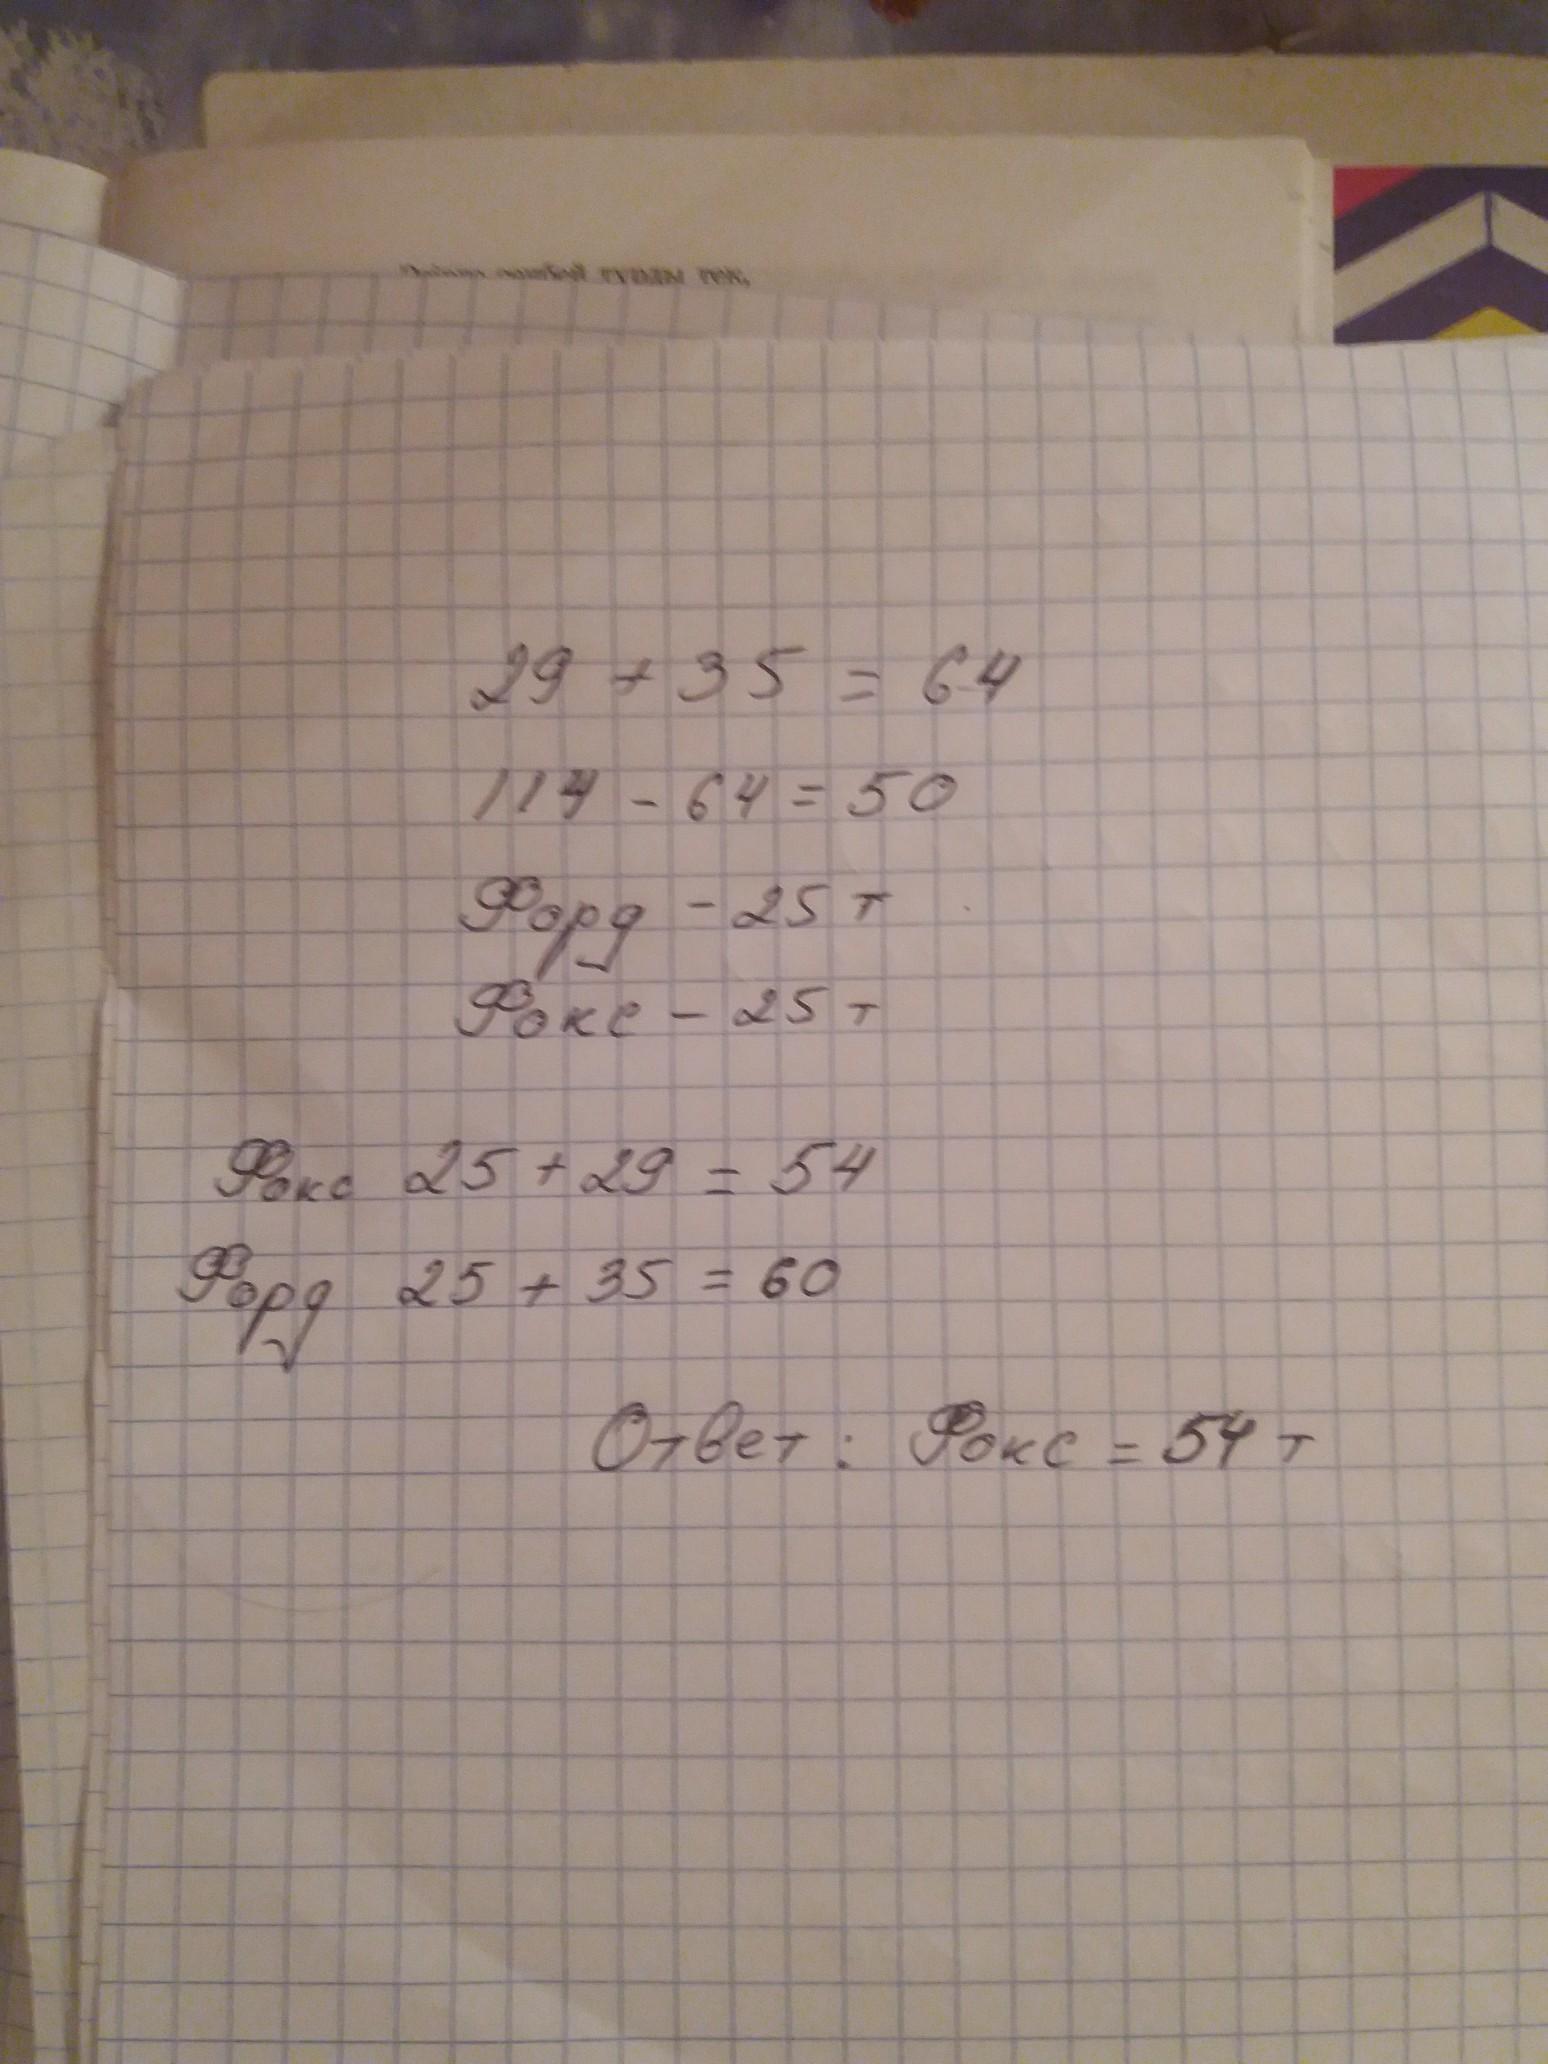 турды тек,
29 + 35 = 64
114 - 64 = 50
Форд - 25 т
Фокс - 25 т
Фокс 25 + 29 = 54
Форд 25 + 35 = 60
Ответ: Фокс = 54 т